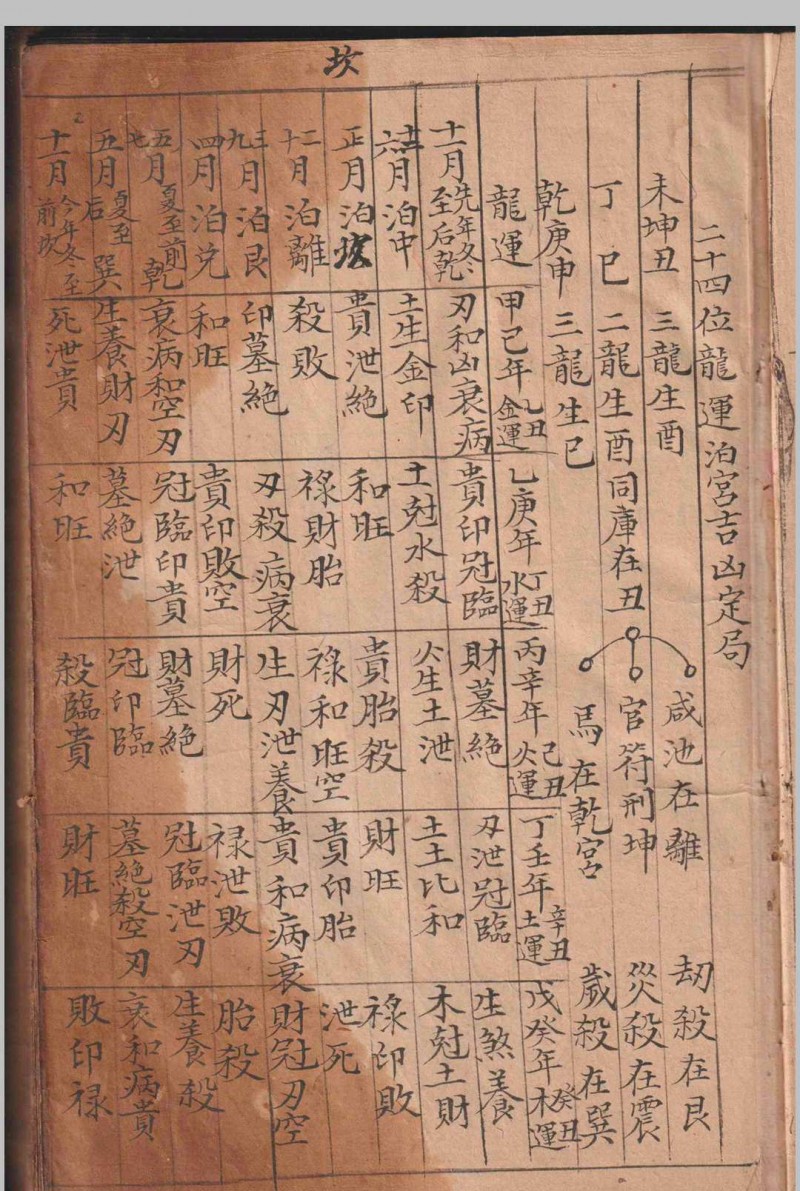 坎
二十四位龍運泊宮吉凶定局
未坤丑 三龍生酉 咸池在離 劫殺在艮
丁 巳 二龍生酉同庫在丑 官符刑坤 災殺在震
乾庚申 三龍生巳 馬在乾宮 歲殺在巽
龍運 甲己年乙丑金運 乙庚年丁丑水運 丙辛年己丑火運 丁壬年辛丑土運 戊癸年癸丑木運
十一月先年冬至后乾 刃和凶衰病 貴印冠臨 財墓絕 刃泄冠臨 生煞養
月泊中 土生金印 土尅水殺 火生土泄 土土比和 木尅土財
正月泊坎 貴泄絕 和旺 貴胎殺 財旺 祿印敗
十二月泊離 殺敗 祿財胎 祿和旺空 貴印胎 泄死
三九月泊艮 印墓絕 刃殺病衰 生刃泄養 貴和病衰 財冠刃空
四月泊兌 和旺 貴印敗空 財死 祿泄敗 胎殺
五七月夏至前乾 衰病和空刃 冠臨印貴 財墓絕 冠臨泄刃 生養殺
五月夏至后巽 生養財刃 墓絕泄 冠印臨 墓絕殺空刃 衰和病貴
十一月今年冬至前坎 死泄貴 和旺 殺臨貴 財旺 敗印祿